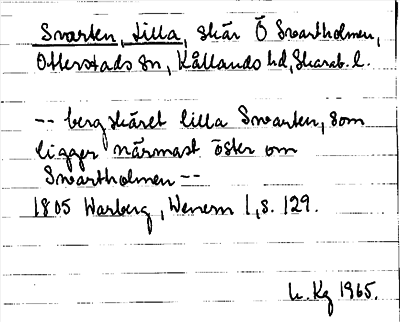 Svarten, Lilla, skär Ö Svartholmen,
Otterstads sn, Kållands hd, Skarab. l.
-- bergskäret lilla Svarten, som
ligger närmast öster om
Svartholmen --
1805 Warberg, Wenern 1, s. 129.
1965.